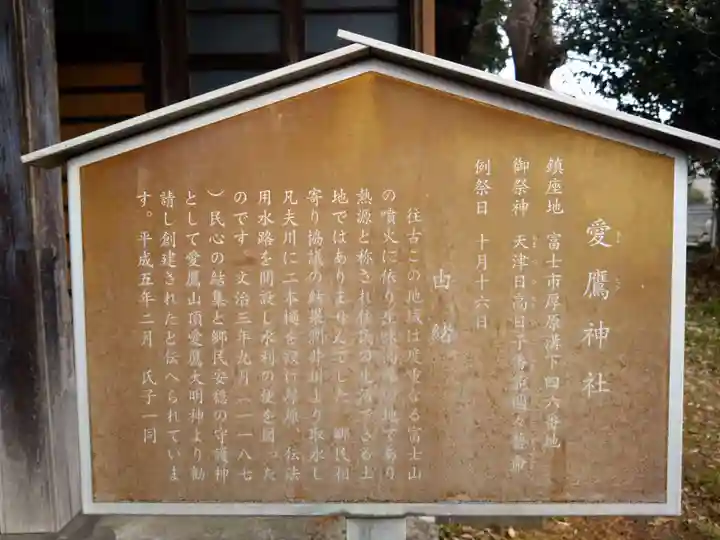 愛鷹神社
鎮座地 富士市厚原溝下四六番地
御祭神 天津日高日子番能
例祭日 十月十六日
由緒
往古この地域は度重なる富士山
の噴火に依り の地であり
熱源と称され住民の生活できる土
地ではありませんでした。郷民相
寄り協議の結果潤井川より取水し
凡夫川に二本樋を設け厚原、伝法
用水路を開設し水利の便を図った
のです 文治三年九月(一一八七
)民心の結集と郷民安穏の守護神
として愛鷹山頂愛鷹大明神より勧
請し創建されたと伝へられていま
す。平成五年二月 氏子一同